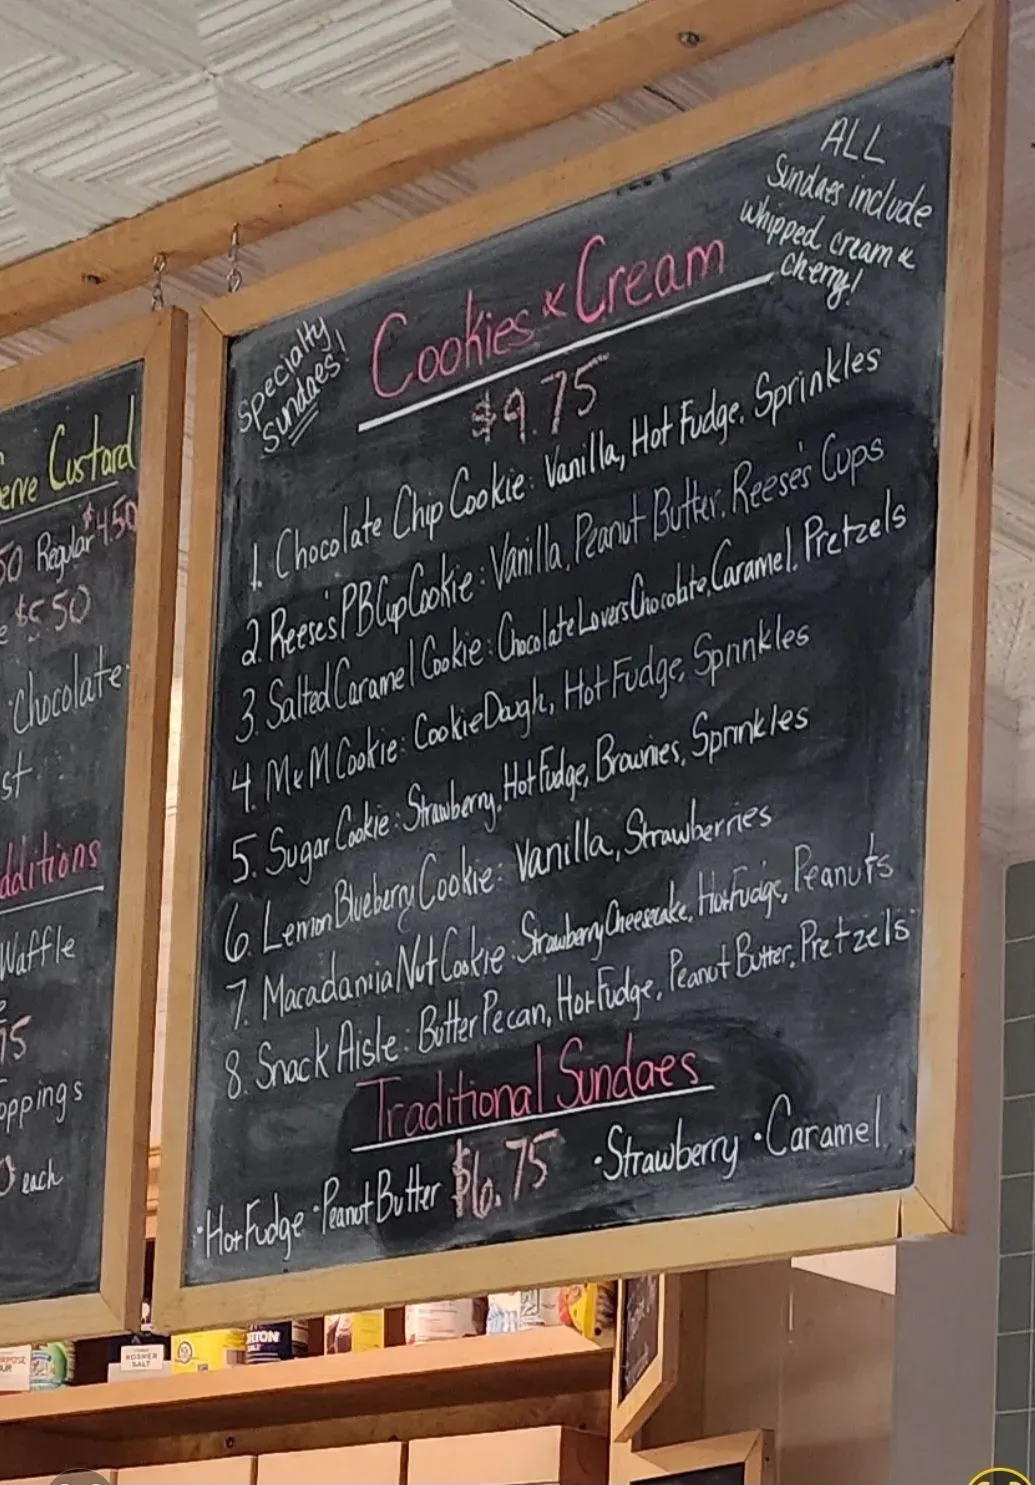 erve Custard
50 Regular $4.50
$5.50
Chocolate
st
dditions
Waffle
75
oppings
each
Specialty
Sundaes!
ALL
Sundaes include
whipped cream &
cherry!
Cookies & Cream
$9.75
1. Chocolate Chip Cookie: Vanilla, Hot Fudge, Sprinkles
2. Reese's PB Cup Cookie: Vanilla, Peanut Butter, Reese's Cups
3. Salted Caramel Cookie: Chocolate Lovers Chocolate, Caramel, Pretzels
4. M&M Cookie: Cookie Dough, Hot Fudge, Sprinkles
5. Sugar Cookie: Strawberry, Hot Fudge, Brownies, Sprinkles
6. Lemon Blueberry Cookie: Vanilla, Strawberries
7. Macadamia Nut Cookie: Strawberry Cheesecake, Hot Fudge, Peanuts
8. Snack Aisle: Butter Pecan, Hot Fudge, Peanut Butter, Pretzels
Traditional Sundaes
·Hot Fudge ·Peanut Butter $6.75 ·Strawberry ·Caramel
KOSHER
SALT